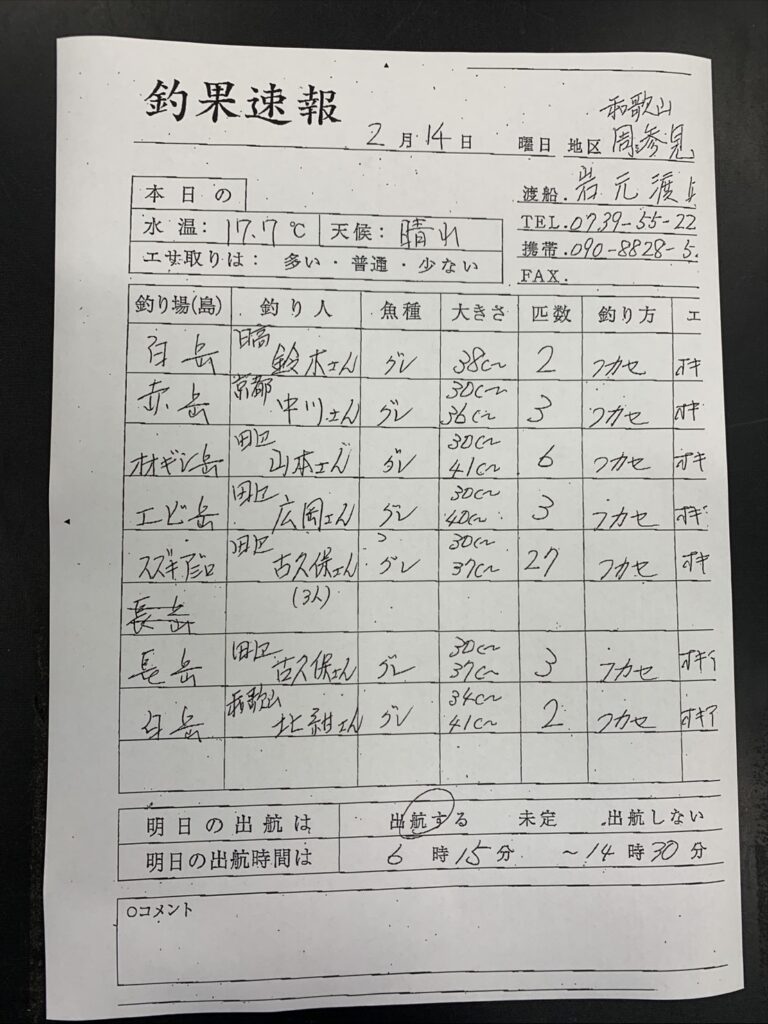 釣果速報
和歌山
2月14日 曜日 地区 周参見
渡船. 岩元渡
本日の
水温: 17.7℃ 天候: 晴れ
TEL.0739-55-22
携帯.090-8828-5.
エサ取りは: 多い・普通・少ない
FAX.
釣り場(島) 釣り人 魚種 大きさ 匹数 釣り方 エ
白岳 日高 鈴木さん グレ 38cm 2 フカセ オキ
赤岳 京都 中川さん グレ 30cm 36cm 3 フカセ オキ
オオギシ岳 田辺 山本さん グレ 30cm 41cm 6 フカセ オキ
エビ岳 田辺 広岡さん グレ 30cm 40cm 3 フカセ オキ
スズキ 田辺 古久保さん グレ 30cm 37cm 27 フカセ オキ
長岳 (3人)
長岳 田辺 古久保さん グレ 30cm 37cm 3 フカセ オキ
白岳 和歌山 さん グレ 34cm 41cm 2 フカセ オキア
明日の出航は 出航する 未定 出航しない
明日の出航時間は 6時15分 ～14時30分
○コメント